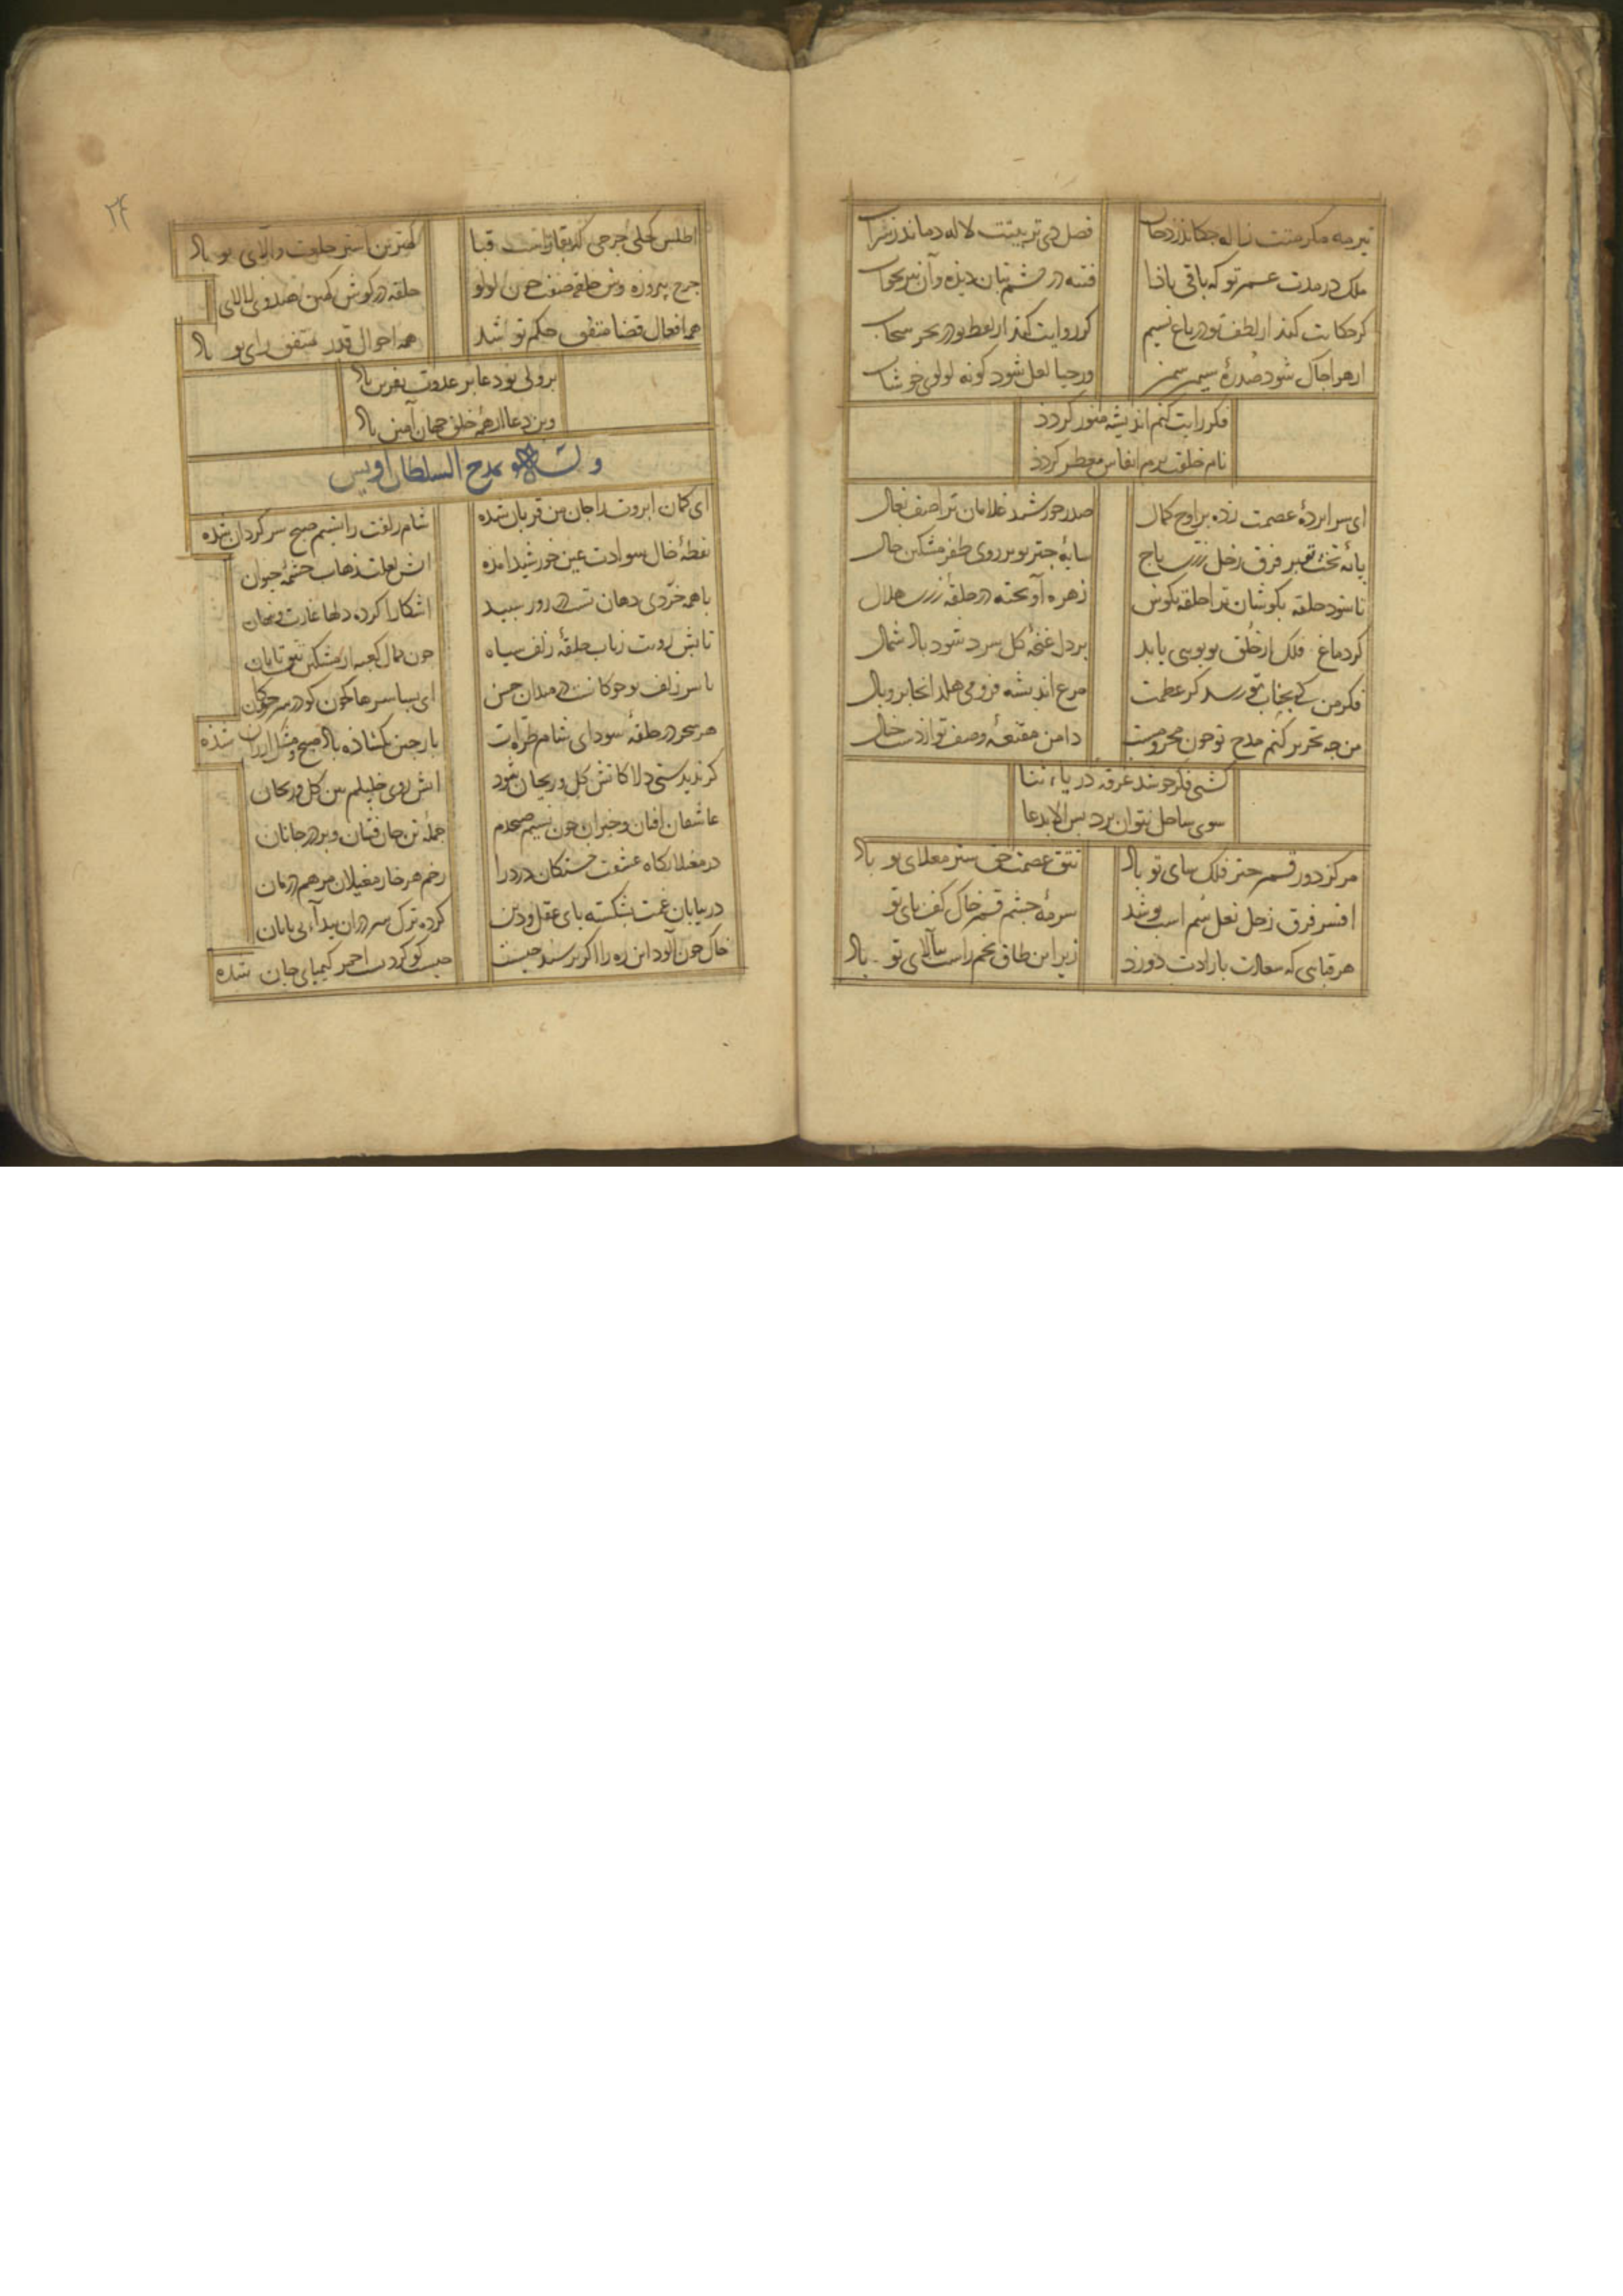 تیر مه مکرمتت ژاله چکاند ز دخان فصل دی تربیتت لاله دماند ز سراب
ملک در مدت عمر تو که باقی باذا فتنه در چشم بتان دیذه و آن نیز بخواب
کر حکایت کند از لطف تو در باغ نسیم کر روایت کند از لفظ تو در بحر سحاب
از هوا چاک شود صدرهٔ سیمین سمن ور حیا لعل شود کونه لولوی خوشاب
فکر رایت کنم اندیشه منور کردد
نام خلقت برم انفاس معطر کردد
ای سرابردهٔ عصمت زده بر اوج کمال صدر خورشید غلامان ترا صف نعال
بایهٔ تخت تو بر فرق زحل زرین تاج سایهٔ چتر تو بر روی ظفر مشکین خال
تا شود حلقه بکوشان ترا حلقه بکوش زهره آویخته در حلقهٔ زرین هلال
کر دماغ فلک از خلق تو بویی یابد بر دل غنچهٔ کل سرد شود باد شمال
فکر من کی بجناب تو رسد کز عظمت مرغ اندیشه فرو می هلد آنجا پر و بال
من چه تحریر کنم مدح تو چون محرومست دامن مقنعهٔ وصف تو از دست خیال
کشتی فکر چو شد غرقه دریاء ثنا
سوی ساحل نتوان برد بس الا بدعا
مرکز دور قمر چتر فلک سای تو باد تتق عصمت حق ستر معلای تو باد
افسر فرق زحل نعل سم اسب تو شد سرمهٔ چشم قمر خاک کف پای تو
هر قبایی که سعادت بارادت دوزد زیر این طاق نهم راست ببالای تو باد
۲۴
اطلس کحلی چرخی که بقا راست قبا کمترین آستر خلوت والای تو باد
چرخ پیروزه وش حلقه صفت چون لولو حلقه در کوش کمین هندوی لالای
همه افعال قضا متفق حکم تو شد همه احوال قدر متفق رای تو باد
بر ولی تو دعا بر عدوت نفرین باد
وین دعا را ز همه خلق جهان آمین باد
وله بمدح السلطان اویس
ای کمان ابروت را جان من قربان شده شام زلفت را نسیم صبح سرکردان شده
نقطهٔ خال سوادت عین خورشید آمده آتش لعلت ذهاب چشمهٔ حیوان
با همه خردی دهان تست در روز سپید آشکارا کرده دلها غارت و پنهان
تابش رویت ز تاب حلقهٔ زلف سیاه چون جمال کعبه از مشکین تتق تابان
با سر زلف چو چوکانت در میدان حسن ای بسا سرها که چون کو در سر چوکان
هر سحر در حلقهٔ سودای شام طره ات بار چین بکشاده باد صبح و مشک ارزان شذه
کر ندیدستی دلا کاتش کل و ریحان شود آتش روی خلیلم بین کل و ریحان
عاشقان افتان و خیزان چون نسیم صبحدم جمله تن جان فشان و بر در جانان
در مغیلان کاه عشقت خستکان درد را زخم هر خار مغیلان مرهم درمان
در بیابان غمت بشکسته بای عقل و دین کرده ترک سر در آن بیدآء بی پایان
خاک خون آلود این ره را اکر پرسند چیست چیست کوکردست احمر کیمیای جان شده